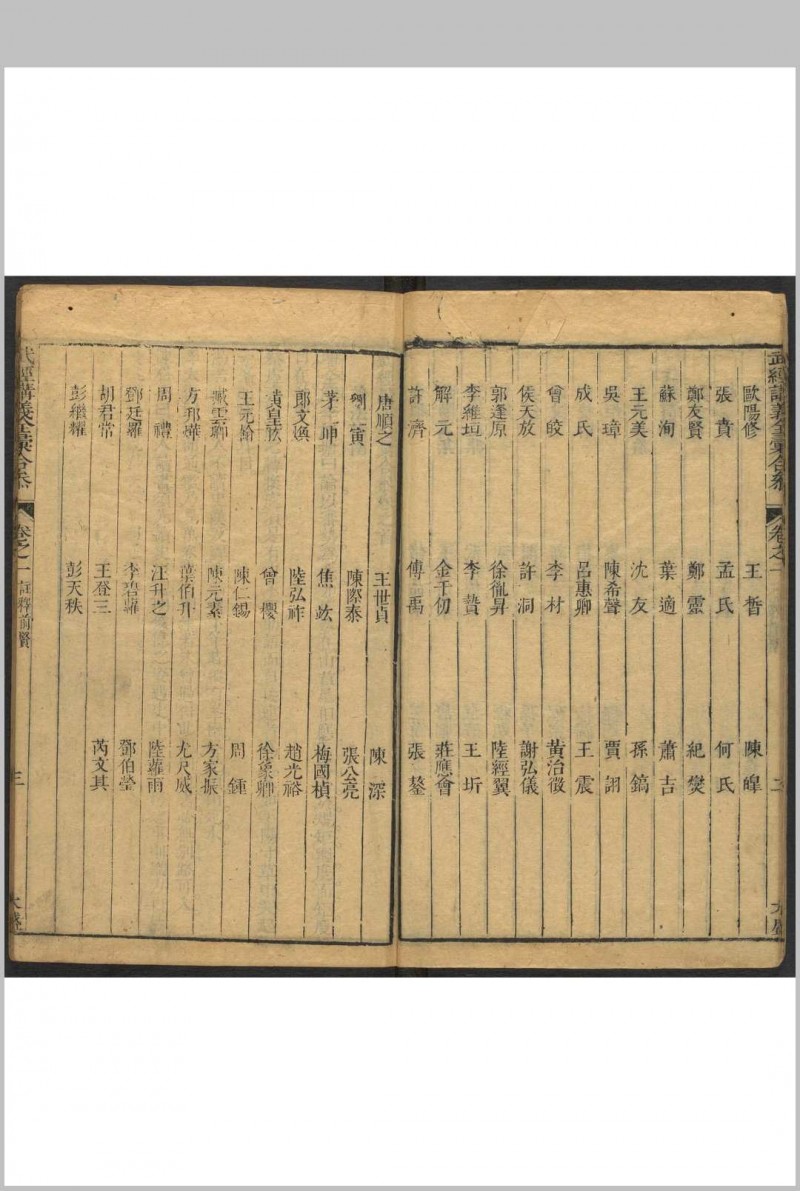 武經講義全彙合參 卷之一 二 大盛
歐陽修 王晳 陳皥
張賁 孟氏 何氏
鄭友賢 鄭靈 紀燮
蘇洵 葉適 蕭吉
王元美 沈友 孫鎬
吳璋 陳希聲 賈詡
成氏 呂惠卿 王震
曾皎 李材 黃治徵
侯天放 許洞 謝弘儀
郭逢原 徐𢖍昇 陸經翼
李維垣 李贄 王圻
解元 金千仞 莊應會
許濟 傅禹 張鏊
唐順之 王世貞 陳深
劉寅 陳際泰 張公亮
茅坤 焦竑 梅國楨
郎文煥 陸弘祚 趙光裕
黃皇肱 曾櫻 徐象卿
王元翰 陳仁錫 周鍾
臧雲卿 陳元素 方家振
方邦華 葉伯升 尤尺威
周禮 汪升之 陸蘿雨
鄧廷羅 李碧羅 鄧伯瑩
胡君常 王登三 芮文其
彭繼耀 彭天秩
武經講義全彙合參 卷之一 註釋前賢 三 大盛